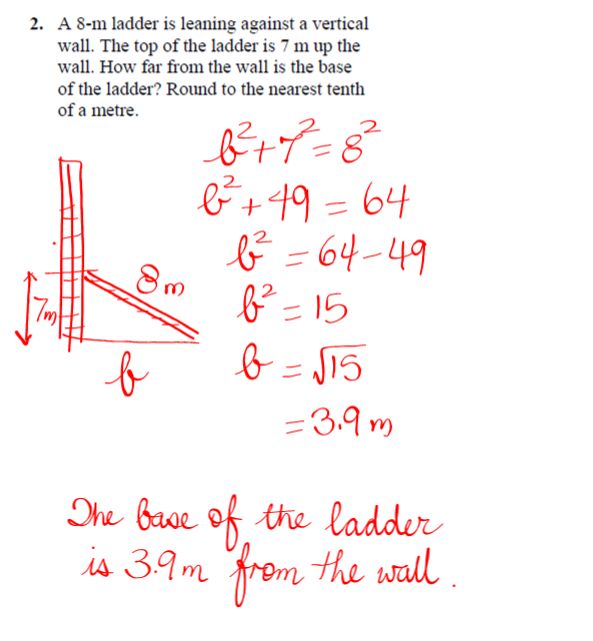 2. A 8-m ladder is leaning against a vertical
wall. The top of the ladder is 7 m up the
wall. How far from the wall is the base
of the ladder? Round to the nearest tenth
of a metre.
b²+7²=8²
b²+49=64
b²=64-49
8m
b²=15
7m
b
b=√15
=3.9m
The base of the ladder
is 3.9m from the wall.